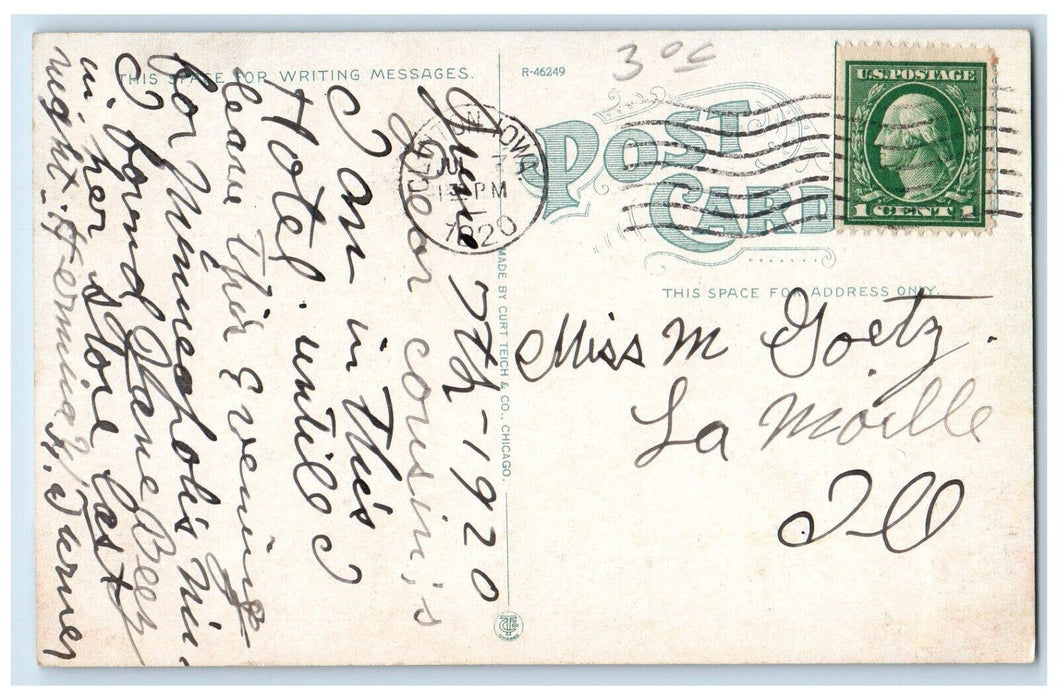 THIS SPACE FOR WRITING MESSAGES.
R-46249
30¢
POST
CARD
U.S. POSTAGE
1 CENT 1
CLINTON, IOWA.
JUL 7
PM
1920
THIS SPACE FOR ADDRESS ONLY.
MADE BY CURT TEICH & CO., CHICAGO.
7th-1920
Dear cousin's
I am in this
Hotel. until I
leave this Evening
for Minneapolis Min.
I found Jane Beey
in her store last
night. Hermina H. Turner
Miss M Goetz.
La Moille
Ill